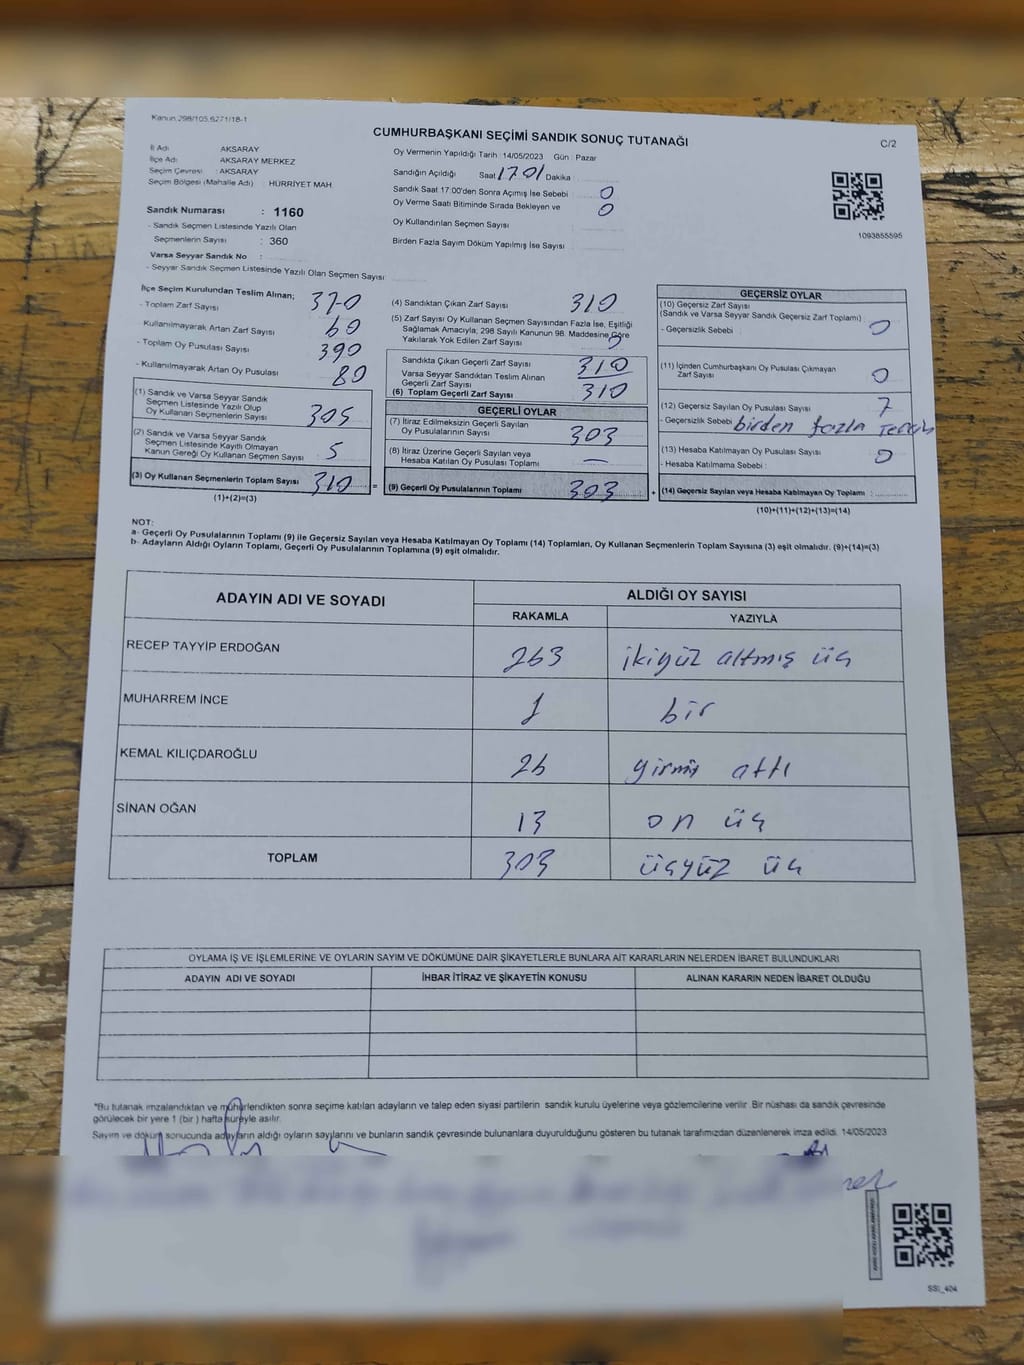 Kanun 298/105,6271/18-1
CUMHURBAŞKANI SEÇİMİ SANDIK SONUÇ TUTANAĞI
C/2
İl Adı AKSARAY
İlçe Adı AKSARAY MERKEZ
Seçim Çevresi : AKSARAY
Seçim Bölgesi (Mahalle Adı) : HÜRRİYET MAH.
Sandık Numarası : 1160
- Sandık Seçmen Listesinde Yazılı Olan
Seçmenlerin Sayısı : 360
Varsa Seyyar Sandık No :
- Seyyar Sandık Seçmen Listesinde Yazılı Olan Seçmen Sayısı
Oy Vermenin Yapıldığı Tarih :14/05/2023 Gün : Pazar
Sandığın Açıldığı Saat 17 01 Dakika
Sandık Saat 17:00'den Sonra Açımış İse Sebebi : 0
Oy Verme Saati Bitiminde Sırada Bekleyen ve 0
Oy Kullandırılan Seçmen Sayısı
Birden Fazla Sayım Döküm Yapılmış İse Sayısı
1093855595
İlçe Seçim Kurulundan Teslim Alınan;
- Toplam Zarf Sayısı 370
- Kullanılmayarak Artan Zarf Sayısı 60
- Toplam Oy Pusulası Sayısı 390
- Kullanılmayarak Artan Oy Pusulası 80
(1) Sandık ve Varsa Seyyar Sandık
Seçmen Listesinde Yazılı Olup
Oy Kullanan Seçmenlerin Sayısı 305
(2) Sandık ve Varsa Seyyar Sandık
Seçmen Listesinde Kayıtlı Olmayan
Kanun Gereği Oy Kullanan Seçmen Sayısı 5
(3) Oy Kullanan Seçmenlerin Toplam Sayısı 310 =
(1)+(2)=(3)
(4) Sandıktan Çıkan Zarf Sayısı 310
(5) Zarf Sayısı Oy Kullanan Seçmen Sayısından Fazla İse, Eşitliği
Sağlamak Amacıyla; 298 Sayılı Kanunun 98. Maddesine Göre
Yakılarak Yok Edilen Zarf Sayısı
Sandıkta Çıkan Geçerli Zarf Sayısı 310
Varsa Seyyar Sandıktan Teslim Alınan
Geçerli Zarf Sayısı
(6) Toplam Geçerli Zarf Sayısı 310
GEÇERLİ OYLAR
(7) İtiraz Edilmeksizin Geçerli Sayılan
Oy Pusulalarının Sayısı 303
(8) İtiraz Üzerine Geçerli Sayılan veya
Hesaba Katılan Oy Pusulası Toplamı —
(9) Geçerli Oy Pusulalarının Toplamı 303 +
GEÇERSİZ OYLAR
(10) Geçersiz Zarf Sayısı
(Sandık ve Varsa Seyyar Sandık Geçersiz Zarf Toplamı)
- Geçersizlik Sebebi : 0
(11) İçinden Cumhurbaşkanı Oy Pusulası Çıkmayan
Zarf Sayısı 0
(12) Geçersiz Sayılan Oy Pusulası Sayısı 7
- Geçersizlik Sebebi birden fazla Tercih
(13) Hesaba Katılmayan Oy Pusulası Sayısı 0
- Hesaba Katılmama Sebebi :
(14) Geçersiz Sayılan veya Hesaba Katılmayan Oy Toplamı :
(10)+(11)+(12)+(13)=(14)
NOT:
a- Geçerli Oy Pusulalarının Toplamı (9) ile Geçersiz Sayılan veya Hesaba Katılmayan Oy Toplamı (14) Toplamları, Oy Kullanan Seçmenlerin Toplam Sayısına (3) eşit olmalıdır. (9)+(14)=(3)
b- Adayların Aldığı Oyların Toplamı, Geçerli Oy Pusulalarının Toplamına (9) eşit olmalıdır.
ADAYIN ADI VE SOYADI ALDIĞI OY SAYISI
RAKAMLA YAZIYLA
RECEP TAYYİP ERDOĞAN 263 ikiyüz altmış üç
MUHARREM İNCE 1 bir
KEMAL KILIÇDAROĞLU 26 yirmi altı
SİNAN OĞAN 13 on üç
TOPLAM 303 üçyüz üç
OYLAMA İŞ VE İŞLEMLERİNE VE OYLARIN SAYIM VE DÖKÜMÜNE DAİR ŞİKAYETLERLE BUNLARA AİT KARARLARIN NELERDEN İBARET BULUNDUKLARI
ADAYIN ADI VE SOYADI İHBAR İTİRAZ VE ŞİKAYETİN KONUSU ALINAN KARARIN NEDEN İBARET OLDUĞU
*Bu tutanak imzalandıktan ve mühürlendikten sonra seçime katılan adayların ve talep eden siyasi partilerin sandık kurulu üyelerine veya gözlemcilerine verilir. Bir nüshası da sandık çevresinde
görülecek bir yere 1 (bir ) hafta süreyle asılır.
Sayım ve döküm sonucunda adayların aldığı oyların sayılarını ve bunların sandık çevresinde bulunanlara duyurulduğunu gösteren bu tutanak tarafımızdan düzenlenerek imza edildi. 14/05/2023
SSI_404